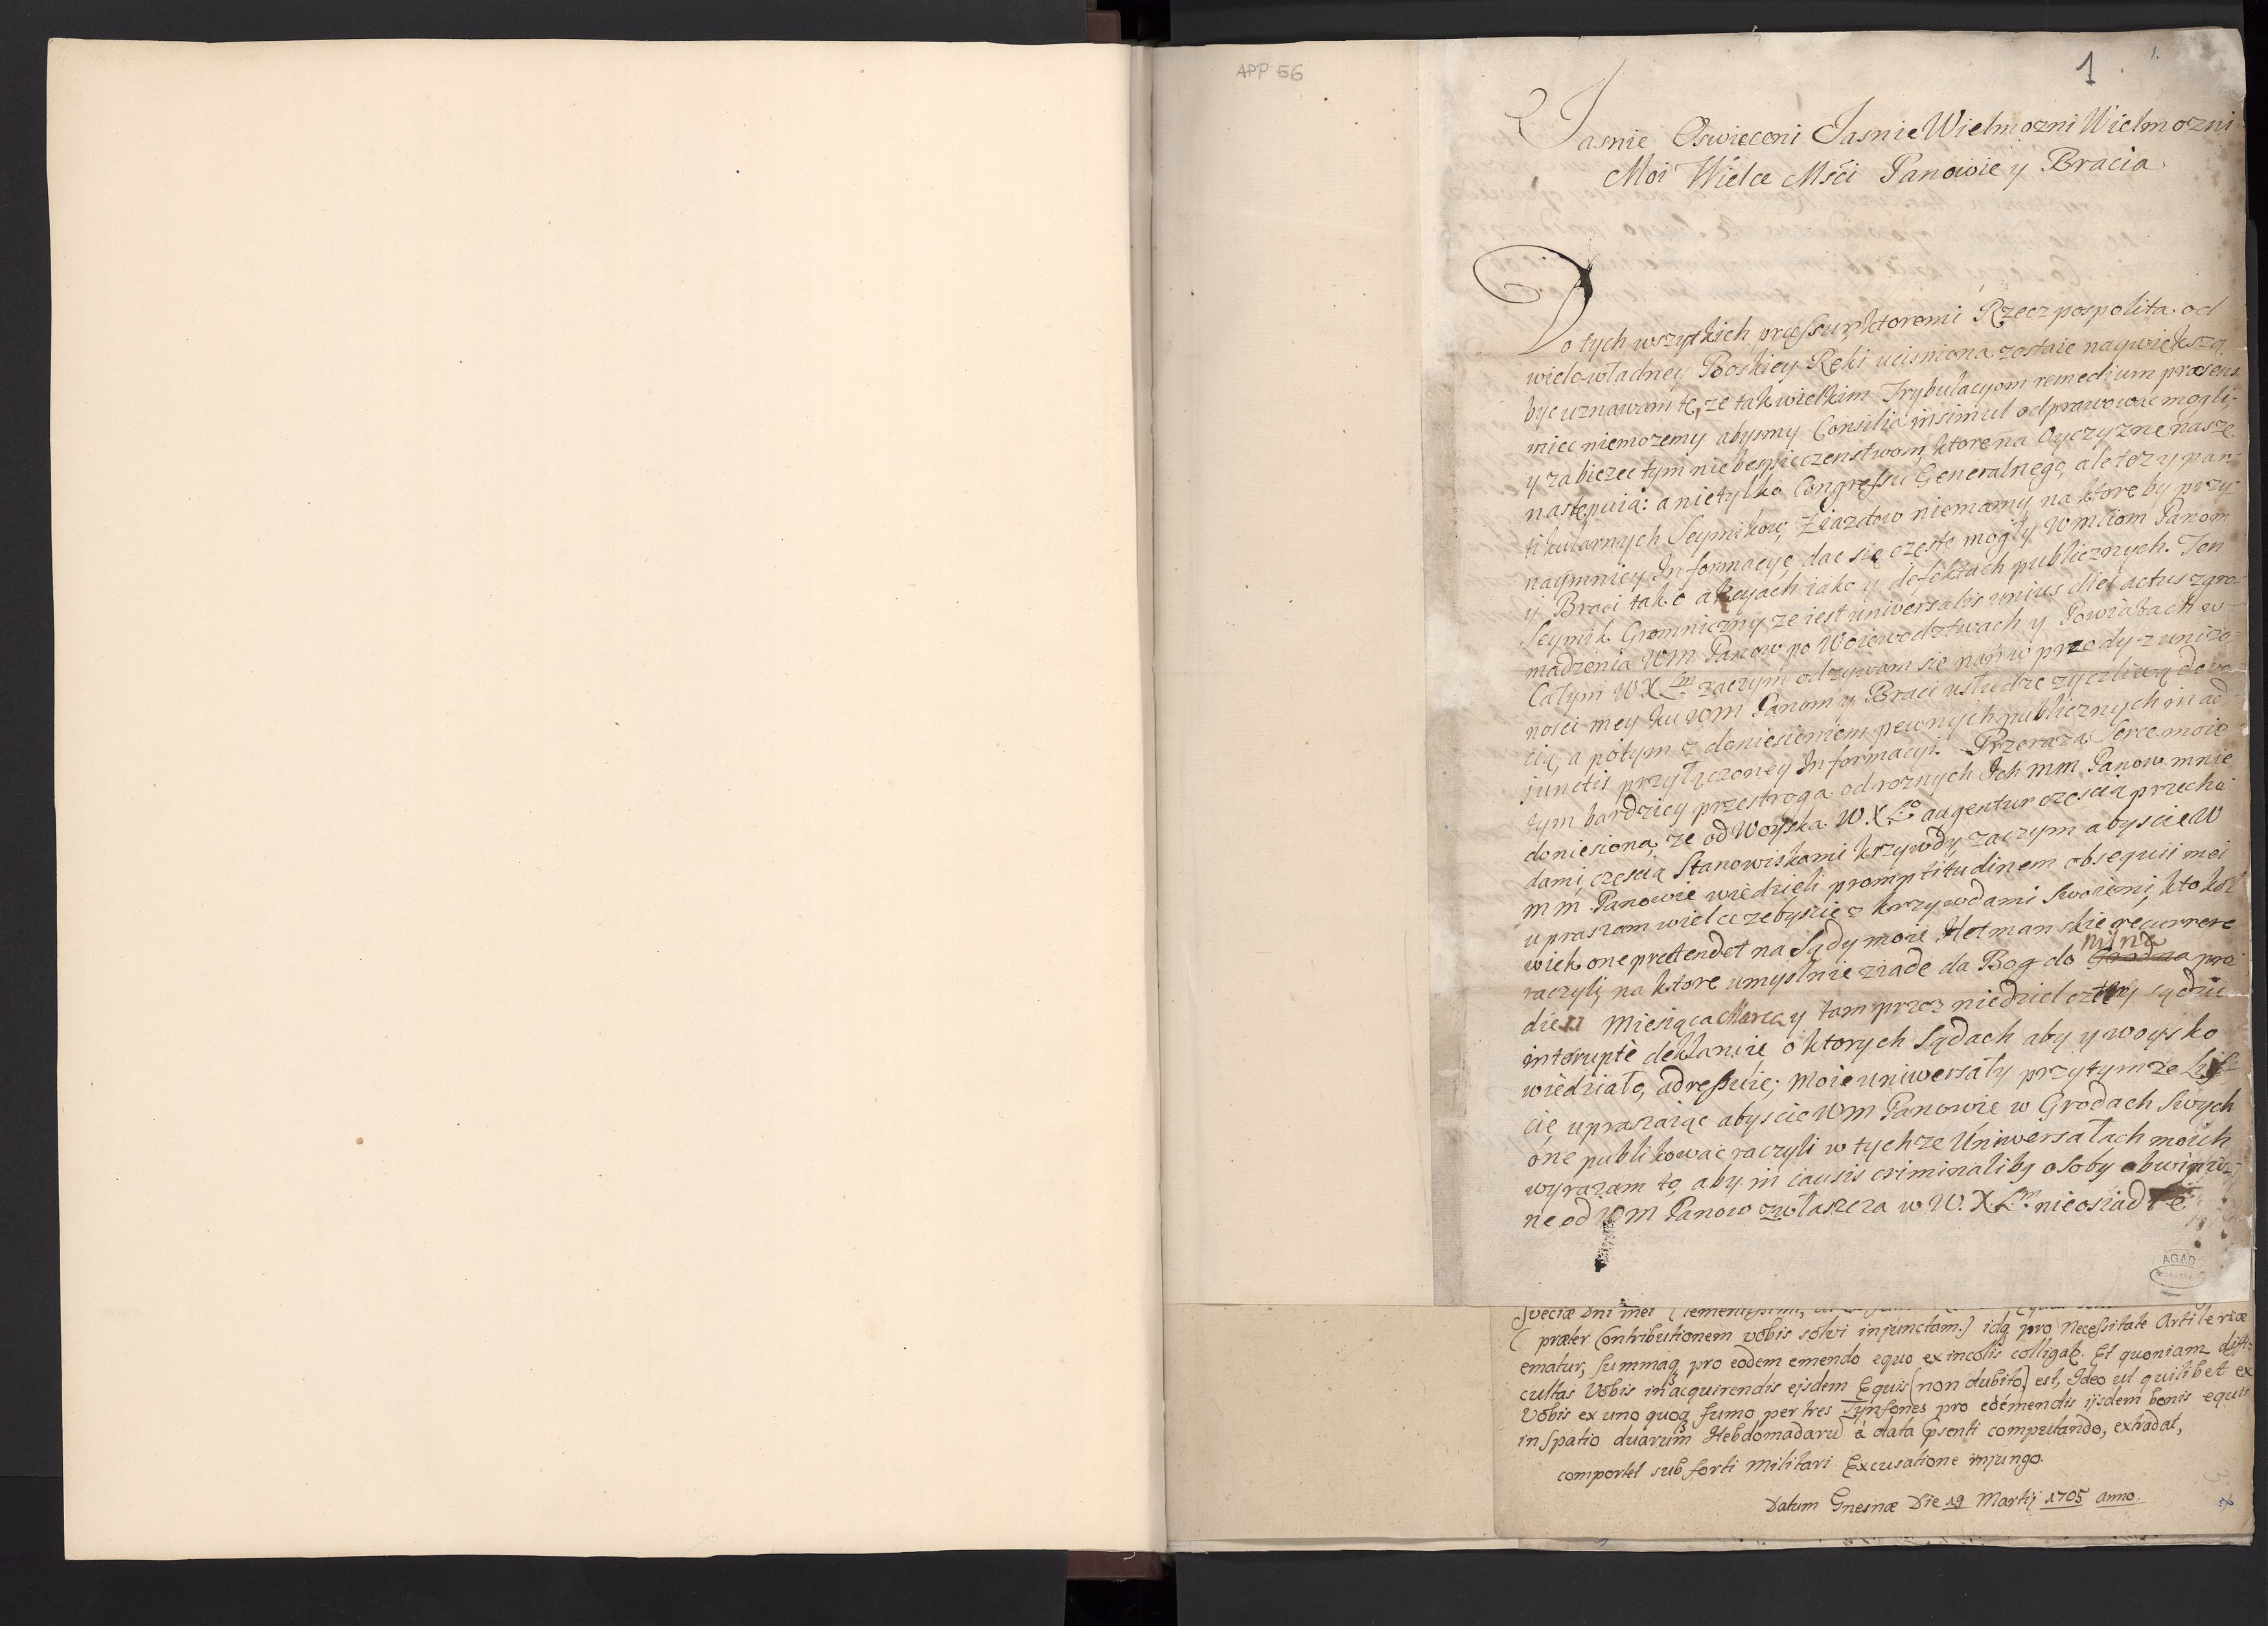 APP 56
1
Jasnie Oswieceni Jasnie Wielmozni Wielmozni
Moi Wielce Mści Panowie y Bracia
Do tych wszytkich pressur, ktoremi Rzeczpospolita od
wielowładney Boskiey Ręki ucisniona zostaie naywiększą
byc uznawam tę, ze tak wielkim Trybulacyom remedium præsens
miec niemozemy abysmy Consilia insimul odprawowac mogli,
y zabiezec tym niebespieczenstwom, ktore na Oyczyznę naszę
następuią: a nietylko Congressu Generalnego, ale tez y par-
tikularnych Seymikow, Ziazdow niemamy, na ktore by przy-
naymniey Informacye dac się częste mogły Wmciom Panom
y Braci tak o akcyach iako y defektach publicznych. Ten
Seymik Gromniczny ze iest universalis unius diei actus zgro-
madzenia WM Panow po Woiewodztwach y Powiatach w
Całym WXLm zaczym odzywam się nań w przody z unizo-
nosci mey ku WM Panom y Braci usłudze zyczliwą dewo
cią, a potym z doniesieniem pewnych publicznych in ad-
junctis przyłączoney Informacyi. Przeraza Serce moie
tym bardziey przestroga od roznych Ich mm Panow mnie
doniesiona, ze od Woyska W.X.Lo augentur częscią przecho
dami, częscią Stanowiskami krzywdy, zaczym abyscie W
mm Panowie wiedzieli promptitudinem obsequii mei
upraszam wielce zebyscie z krzywdami swoiemi, ktokol
wiek one prætendet na Sądy moie Hetmanskie recurrere
raczyli, na ktore umyslnie ziadę da Bog do Grodna Wilna pro
die 11 Miesiąca Marca y tam przez niedziel cztery sądzic
interuptè deklaruię o ktorych Sądach aby y woysko
wiedziało, adressuię; moie uniwersały przy tymze Lis-
cie upraszaiąc abyscie WM Panowie w Grodach swych
one publikowac raczyli w tychze Uniwersałach moich
wyrazam to, aby in causis criminalibq osoby obwinio-
ne od WM Panow zwłaszcza w W.X.Lm nieosiadłe
AGAD
Sveciæ Dni mei Clementissimi,
(præter Contributionem vobis solvi injunctam.) idq pro Necessitate Artileriæ
ematur, summaq pro eodem emendo equo ex incolis colligat. Et quoniam diffi-
cultas Vobis in acquirendis ejsdem Equis (non dubito) est, Ideo ut quilibet ex
Vobis ex uno quoq fumo per tres Tynfones pro edémendis ijsdem bonis equis
in spatio duarum Hebdomadarū à data psenti computando, extradat,
comportet sub forti Militari Excusatione injungo.
Datum Gnesnæ Die 19 Martij 1705 Anno.